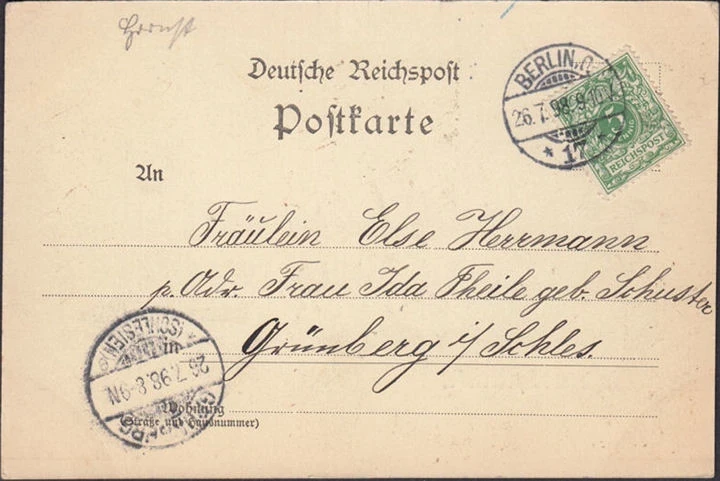 Deutsche Reichspost
Postkarte
BERLIN, O.
26.7.98.9-10V
* 17 *
REICHSPOST
An
Fräulein Else Herrmann
p. Adr. Frau Ida Theile geb. Schuster
Grünberg i/ Schles.
* (SCHLESIEN) *
26.7.98.8-9N
GRÜNBERG
Wohnung
(Straße und Hausnummer)